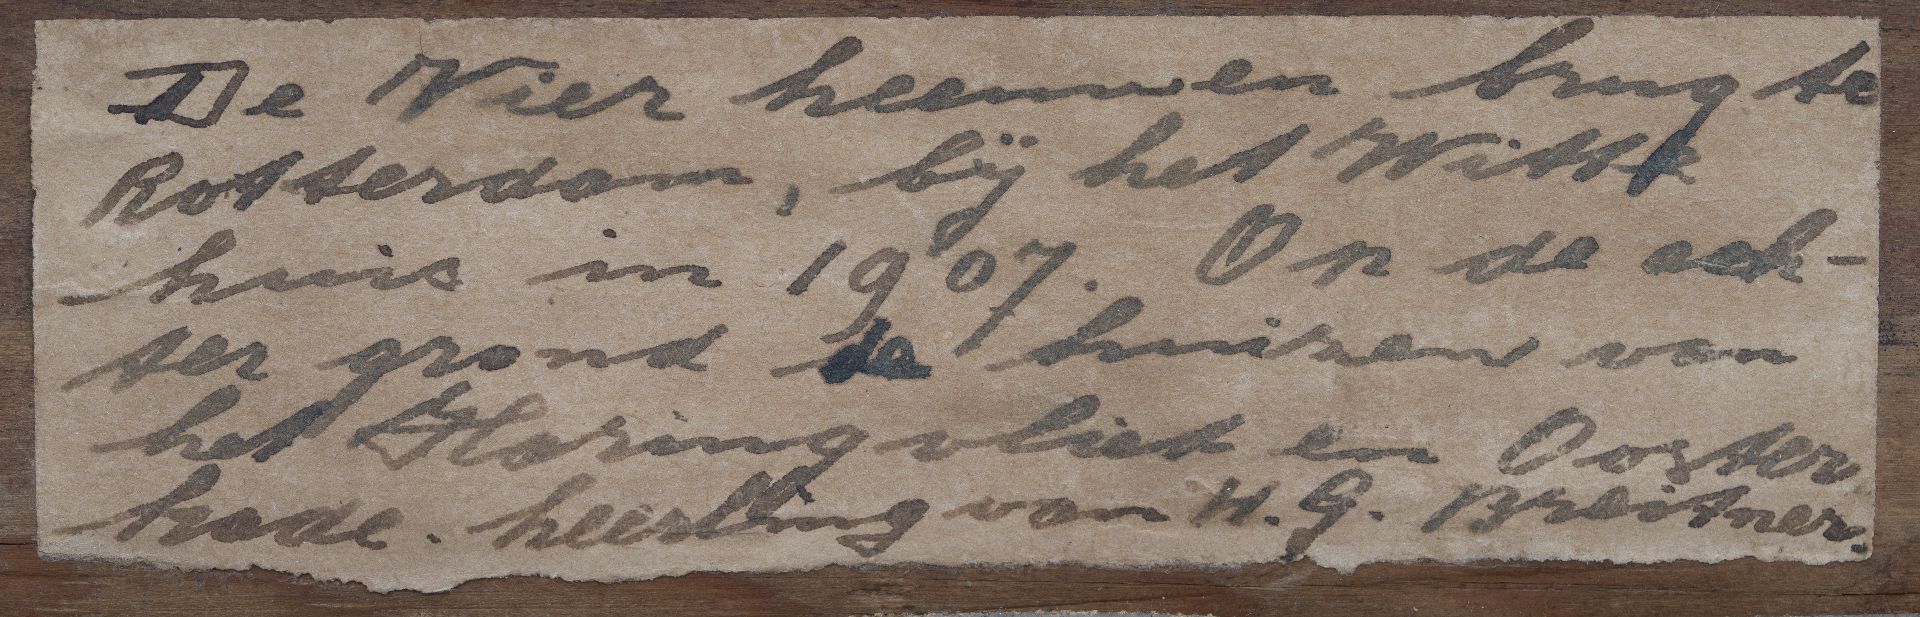 De Vier heeuwen brug te
Rotterdam, bij het Witte
huis in 1907. Op de ach-
ter grond de huizen van
het Haringvliet en Ooster
kade. heerling van H. G. Breitner.